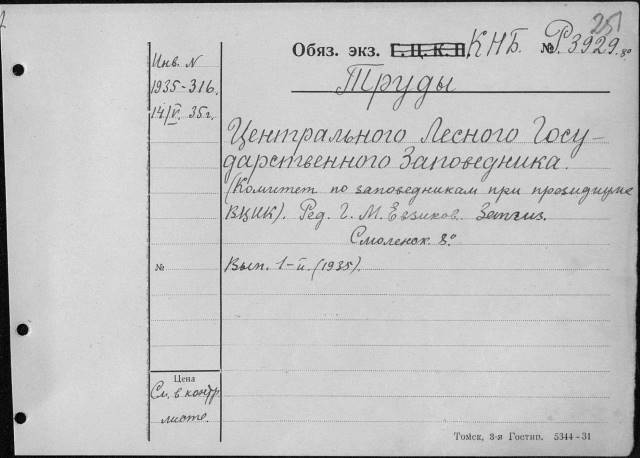 251
Обяз. экз. Г. Ц. К. П. КНБ. № Р.3929.8º
Инв. N
1935-316.
14/V. 35 г.
Труды
Центрального Лесного Госу-
дарственного Заповедника.
(Комитет по заповедникам при президиуме
ВЦИК). Ред. Г. М. Евзиков. Запгиз.
Смоленск. 8º
№ Вып. 1-й. (1935).
Цена
См. в контр.
листе.
Томск, 3-я Гостип. 5344-31